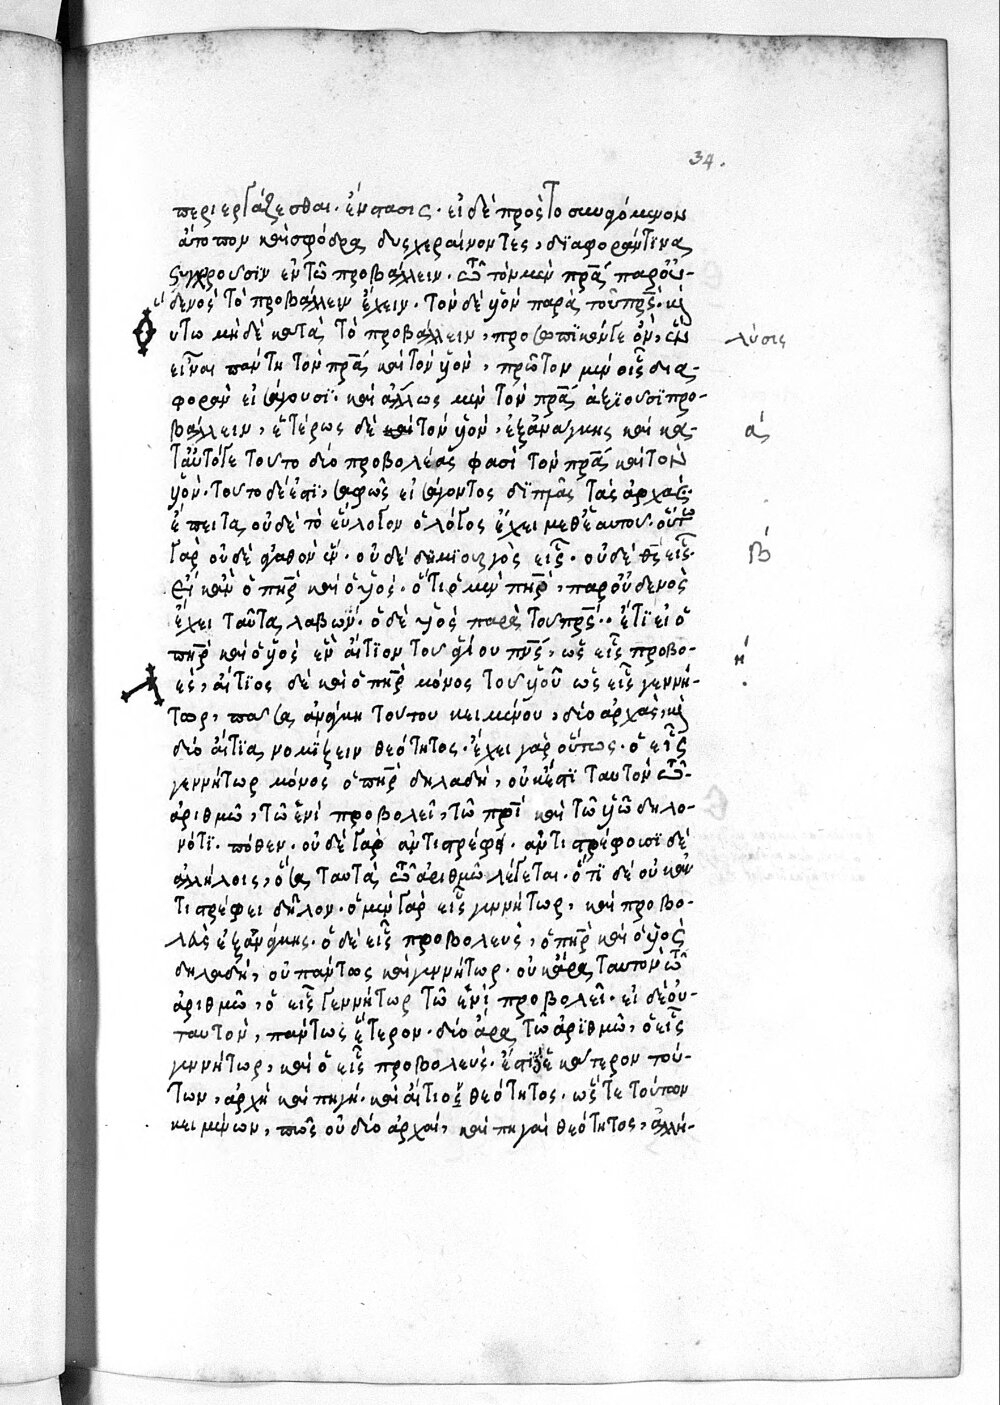 34.
περιεργάζεσθαι· ἔνστασις· εἰ δὲ πρὸς τὸ συναγόμενον
ἄτοπον καὶ σφόδρα δυσχεραίνοντες, διαφοράν τινα
δενὸς τὸ προβάλλειν ἔχειν· τὸν δὲ υἱὸν παρὰ τοῦ πρς· κὶ
εἶναι πάντη τὸν πρα καὶ τὸν υἱὸν, πρῶτον μὲν οἷς δια-
φορὰν εἰσάγουσι· καὶ ἄλλως μὲν τὸν πρα ἀξιοῦσι προ-
βάλλειν, ἑτέρως δὲ καὶ τὸν υἱὸν, ἐξανάγκης καὶ κα-
ταυτόγε τοῦτο δύο προβολέας φασὶ τὸν πρα καὶ τὸν
υἱὸν· τοῦτο δέ ἐστι, σαφῶς εἰσάγοντος διττὰς τὰς ἀρχάς·
ἔπειτα οὐδὲ τὸ εὔλογον ὁ λόγος ἔχει μεθ' ἑαυτοῦ· οὕτω
γὰρ οὐδὲ ἀγαθὸν ἓν· οὐδὲ δημιουργὸς εἷς· οὐδὲ θς εἷς·
εἴη κἂν ὁ πηρ καὶ ὁ υἱός· ὅτι ὁ μὲν πηρ, παρ' οὐδενὸς
ἔχει ταῦτα λαβών· ὁ δὲ υἱὸς παρὰ τοῦ πρς·· ἔτι εἰ ὁ
πηρ καὶ ὁ υἱὸς ἓν αἴτιον τοῦ ἁγίου πνς, ὡς εἷς προβο-
εὺς, αἴτιος δὲ καὶ ὁ πηρ μόνος τοῦ υἱοῦ ὡς εἷς γεννή-
τωρ, πᾶσα ἀνάγκη τούτου κειμένου, δύο ἀρχὰς, κὶ
δύο αἴτια νομίζειν θεότητος· ἔχει γὰρ οὕτως· ὁ εἷς
γεννήτωρ μόνος ὁ πηρ δηλαδὴ, οὐκ ἔστι ταυτὸν τῶ-
ἀριθμῶ, τῶ ἑνὶ προβολεῖ, τῶ πρὶ καὶ τῶ υἱῶ δηλο-
νότι· πόθεν· οὐδὲ γὰρ ἀντιστρέφει· ἀντιστρέφουσι δὲ
ἀλλήλοις, ὅσα ταυτὰ τῶ ἀριθμῶ λέγεται· ὅτι δὲ οὐκ ἀν
τιστρέφει δῆλον· ὁ μὲν γὰρ εἷς γεννήτωρ, καὶ προβο-
λεὺς ἐξανάγκης· ὁ δὲ εἷς προβολεὺς, ὁ πηρ καὶ ὁ υἱὸς
δηλαδὴ, οὐ πάντως καὶ γεννήτωρ· οὐκ ἄρα ταυτὸν τῶ
ἀριθμῶ, ὁ εἷς γεννήτωρ τῶ ἑνὶ προβολεῖ· εἰ δὲ οὐ-
ταυτὸν, πάντως ἕτερον· δύο ἄρα τῶ ἀριθμῶ, ὁ εἷς
γεννήτωρ, καὶ ὁ εἷς προβολεύς· ἔστι δὲ ἑκάτερον τού-
των, ἀρχὴ καὶ πηγὴ· καὶ αἴτιος θεότητος· ὥστε τούτων
κειμένων, πῶς οὐ δύο ἀρχαί, καὶ πηγαὶ θεότητος, ἀλλή-
λύσις
ά
β